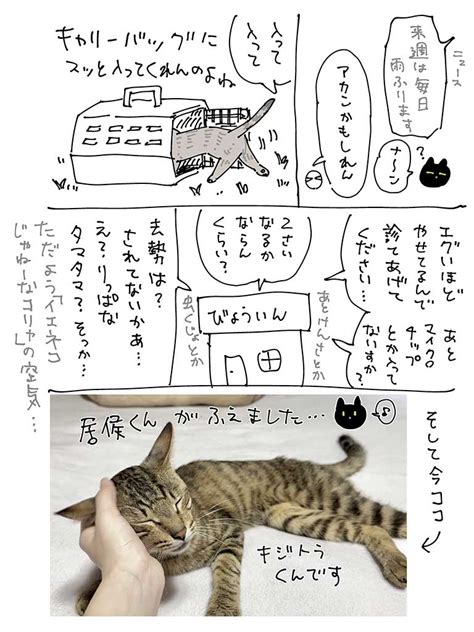 ニュース
来週は毎日
雨ふります
さーン
?
アカンかもしれん
入って
入って
キャリーバッグに
スッと入ってくれんのよね
エグいほど
やせてるんで
診てあげて
ください…
あと
マイクロ
チップ
とか入って
ないすか?
2さい
なるか
ならん
くらい?
びょういん
あとけんさとか
虫くじょとか
去勢は?
されてないかぁ…
え?りっぱな
タマタマ?そっか…
ただよう「イエネコ
じゃねーなコリャ」の空気…
そして今ココ
居候くんがふえました…
キジトラ
くんです